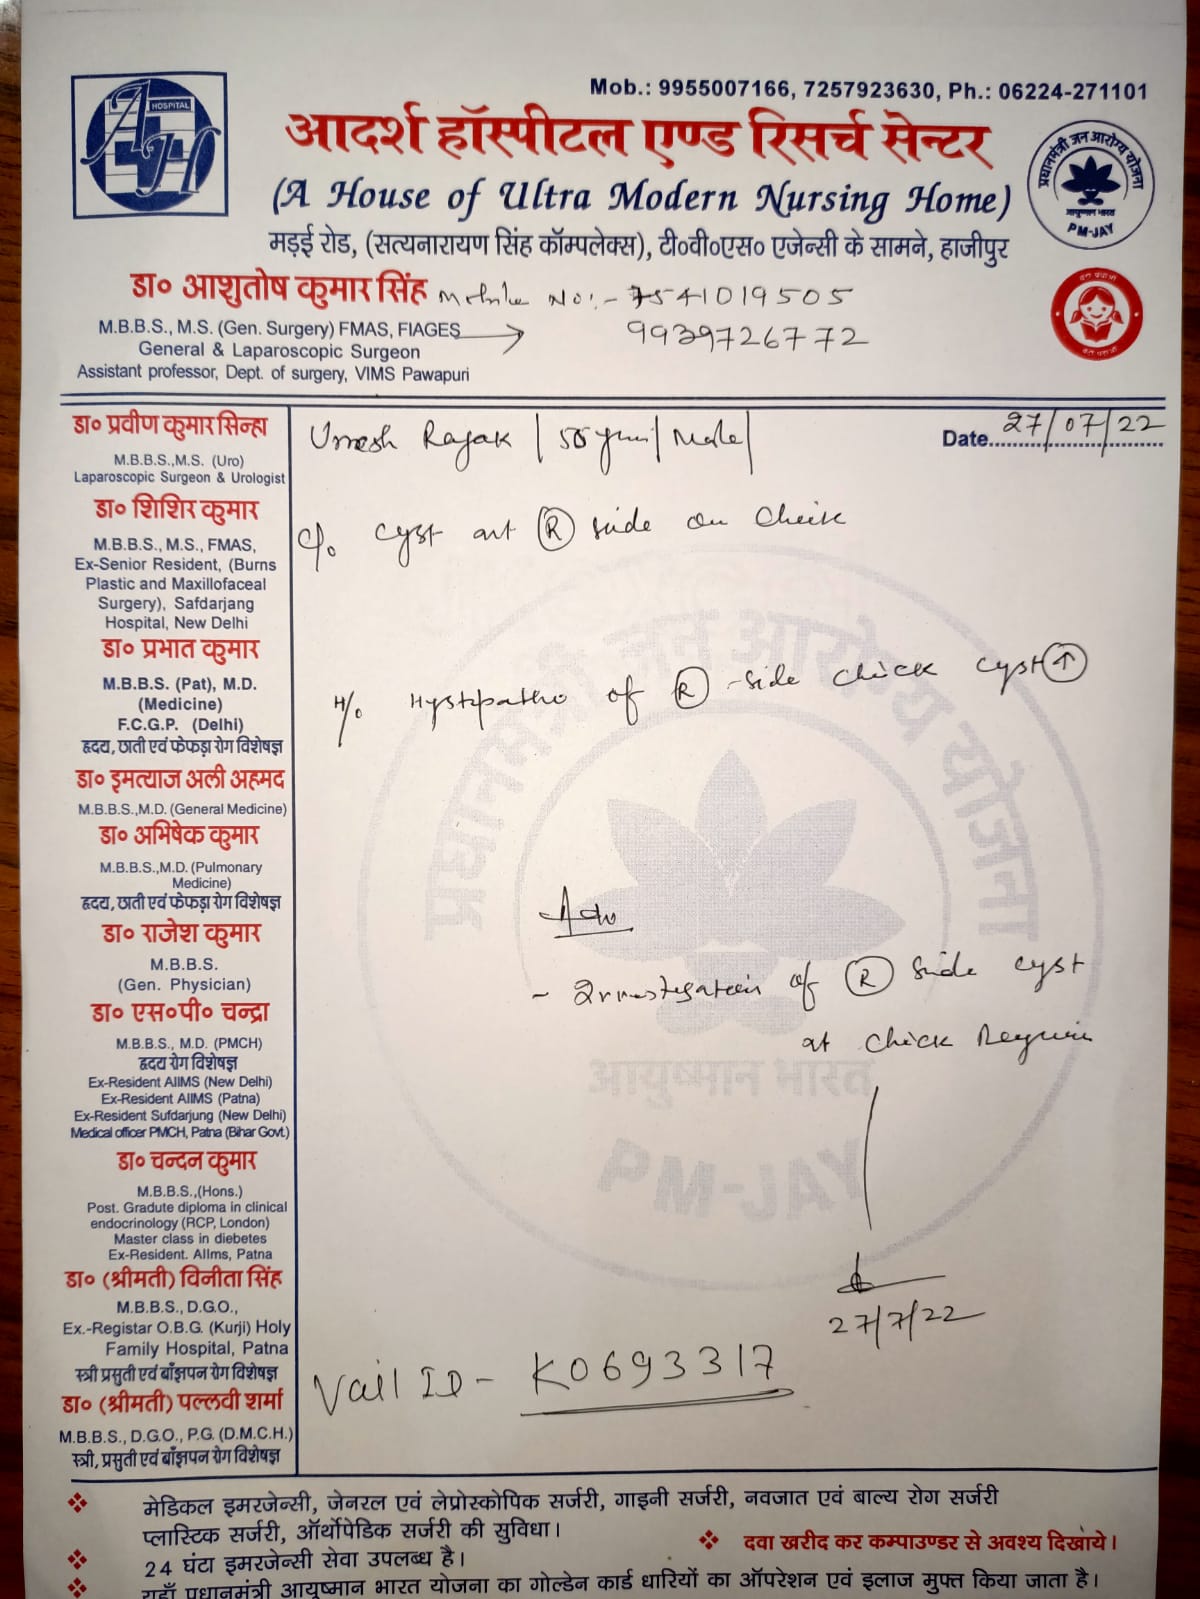 Mob.: 9955007166, 7257923630, Ph.: 06224-271101
HOSPITAL
AH
आदर्श हॉस्पीटल एण्ड रिसर्च सेन्टर
(A House of Ultra Modern Nursing Home)
मड़ई रोड, (सत्यनारायण सिंह कॉम्पलेक्स), टी०वी०एस० एजेन्सी के सामने, हाजीपुर
प्रधानमंत्री जन आरोग्य योजना
आयुष्मान भारत
PM-JAY
डा० आशुतोष कुमार सिंह Mobile No:- 7541019505
M.B.B.S., M.S. (Gen. Surgery) FMAS, FIAGES → 9939726772
General & Laparoscopic Surgeon
Assistant professor, Dept. of surgery, VIMS Pawapuri
Date 27/07/22
Umesh Rajak / 55 / Male /
C/o cyst at (R) side on Cheik
H/o Hystpatho of (R) -side chick cyst (↑)
Adv
- Investegation of (R) side cyst
at chick Require
27/7/22
Vail ID - K0693317
डा० प्रवीण कुमार सिन्हा
M.B.B.S.,M.S. (Uro)
Laparoscopic Surgeon & Urologist
डा० शिशिर कुमार
M.B.B.S., M.S., FMAS,
Ex-Senior Resident, (Burns
Plastic and Maxillofaceal
Surgery), Safdarjang
Hospital, New Delhi
डा० प्रभात कुमार
M.B.B.S. (Pat), M.D.
(Medicine)
F.C.G.P. (Delhi)
हृदय, छाती एवं फेफड़ा रोग विशेषज्ञ
डा० इमत्याज अली अहमद
M.B.B.S.,M.D. (General Medicine)
डा० अभिषेक कुमार
M.B.B.S.,M.D. (Pulmonary
Medicine)
हृदय, छाती एवं फेफड़ा रोग विशेषज्ञ
डा० राजेश कुमार
M.B.B.S.
(Gen. Physician)
डा० एस०पी० चन्द्रा
M.B.B.S., M.D. (PMCH)
हृदय रोग विशेषज्ञ
Ex-Resident AIIMS (New Delhi)
Ex-Resident AIIMS (Patna)
Ex-Resident Sufdarjung (New Delhi)
Medical officer PMCH, Patna (Bihar Govt.)
डा० चन्दन कुमार
M.B.B.S.,(Hons.)
Post. Gradute diploma in clinical
endocrinology (RCP, London)
Master class in diebetes
Ex-Resident. AIIms, Patna
डा० (श्रीमती) विनीता सिंह
M.B.B.S., D.G.O.,
Ex.-Registar O.B.G. (Kurji) Holy
Family Hospital, Patna
स्त्री प्रसुती एवं बाँझपन रोग विशेषज्ञ
डा० (श्रीमती) पल्लवी शर्मा
M.B.B.S., D.G.O., P.G. (D.M.C.H.)
स्त्री, प्रसुती एवं बाँझपन रोग विशेषज्ञ
प्रधानमंत्री जन आरोग्य योजना
आयुष्मान भारत
PM-JAY
मेडिकल इमरजेन्सी, जेनरल एवं लेप्रोस्कोपिक सर्जरी, गाइनी सर्जरी, नवजात एवं बाल्य रोग सर्जरी
प्लास्टिक सर्जरी, ऑर्थोपेडिक सर्जरी की सुविधा।
दवा खरीद कर कम्पाउण्डर से अवश्य दिखाये।
24 घंटा इमरजेन्सी सेवा उपलब्ध है।
यहाँ प्रधानमंत्री आयुष्मान भारत योजना का गोल्डेन कार्ड धारियों का ऑपरेशन एवं इलाज मुफ्त किया जाता है।